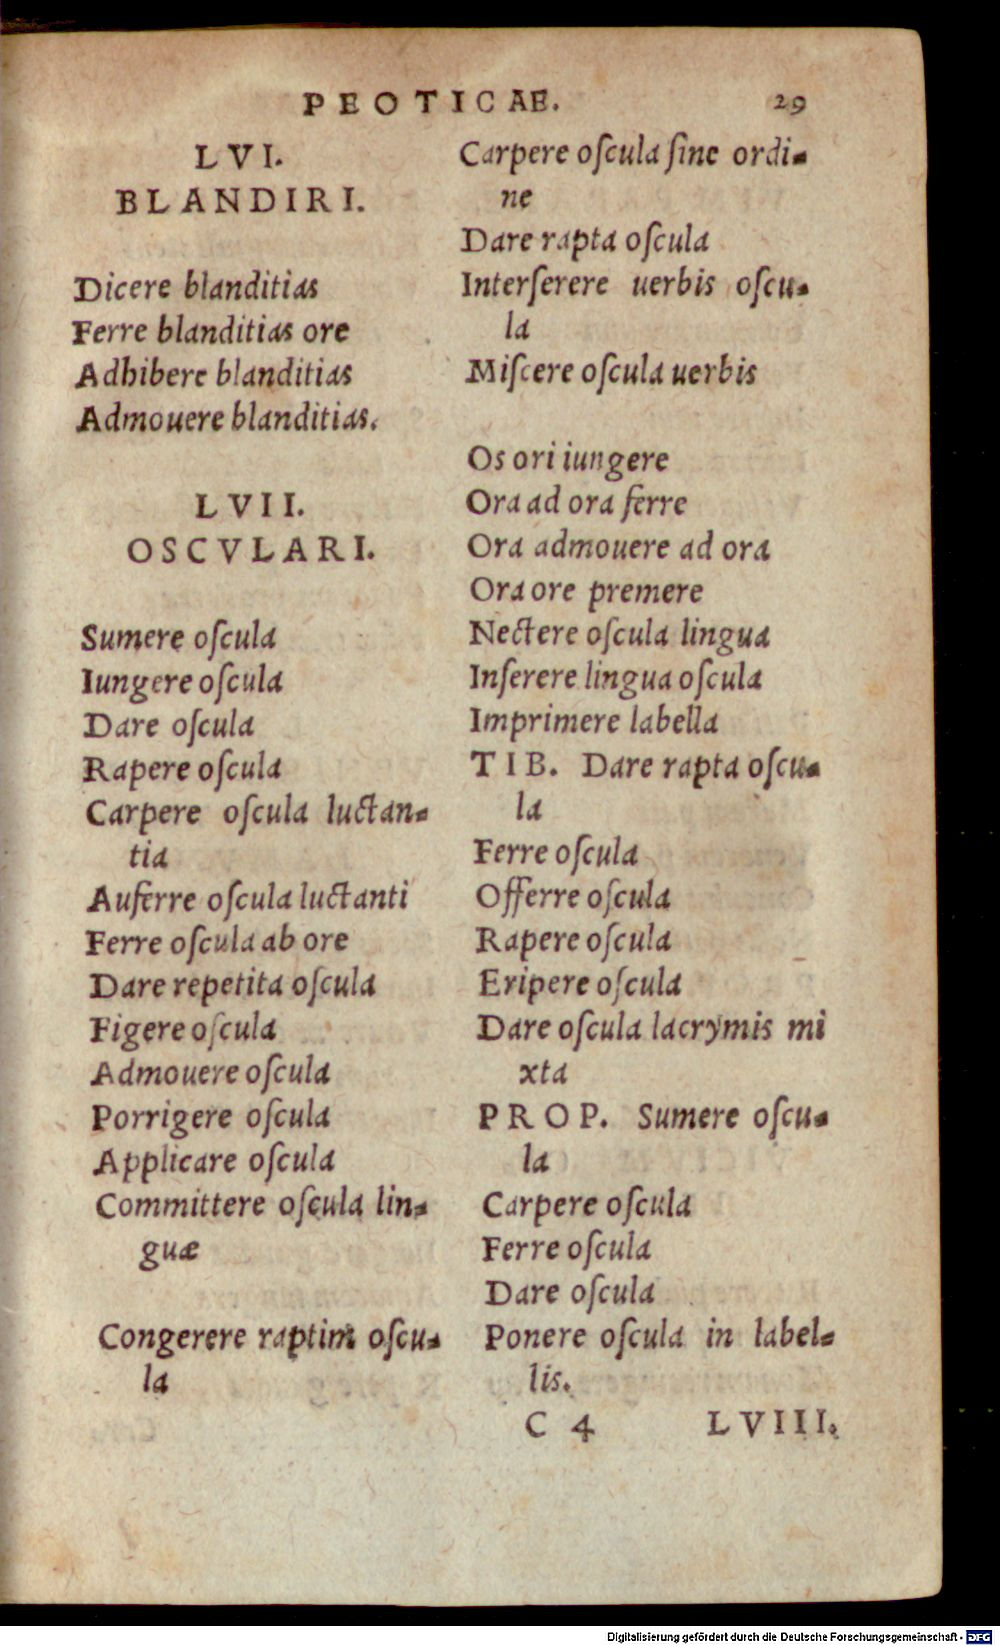 PEOTICAE. 29
LVI.
BLANDIRI.
Dicere blanditias
Ferre blanditias ore
Adhibere blanditias
Admouere blanditias.
LVII.
OSCVLARI.
Sumere oſcula
Iungere oſcula
Dare oſcula
Rapere oſcula
Carpere oſcula luctan-
tia
Auferre oſcula luctanti
Ferre oſcula ab ore
Dare repetita oſcula
Figere oſcula
Admouere oſcula
Porrigere oſcula
Applicare oſcula
Committere oſcula lin-
guæ
Congerere raptim oſcu-
la
Carpere oſcula ſine ordi-
ne
Dare rapta oſcula
Interſerere uerbis oſcu-
la
Miſcere oſcula uerbis
Os ori iungere
Ora ad ora ferre
Ora admouere ad ora
Ora ore premere
Nectere oſcula lingua
Inſerere lingua oſcula
Imprimere labella
TIB. Dare rapta oſcu-
la
Ferre oſcula
Offerre oſcula
Rapere oſcula
Eripere oſcula
Dare oſcula lacrymis mi
xta
PROP. Sumere oſcu-
la
Carpere oſcula
Ferre oſcula
Dare oſcula
Ponere oſcula in label-
lis.
C 4 LVIII.
Digitalisierung gefördert durch die Deutsche Forschungsgemeinschaft - DFG